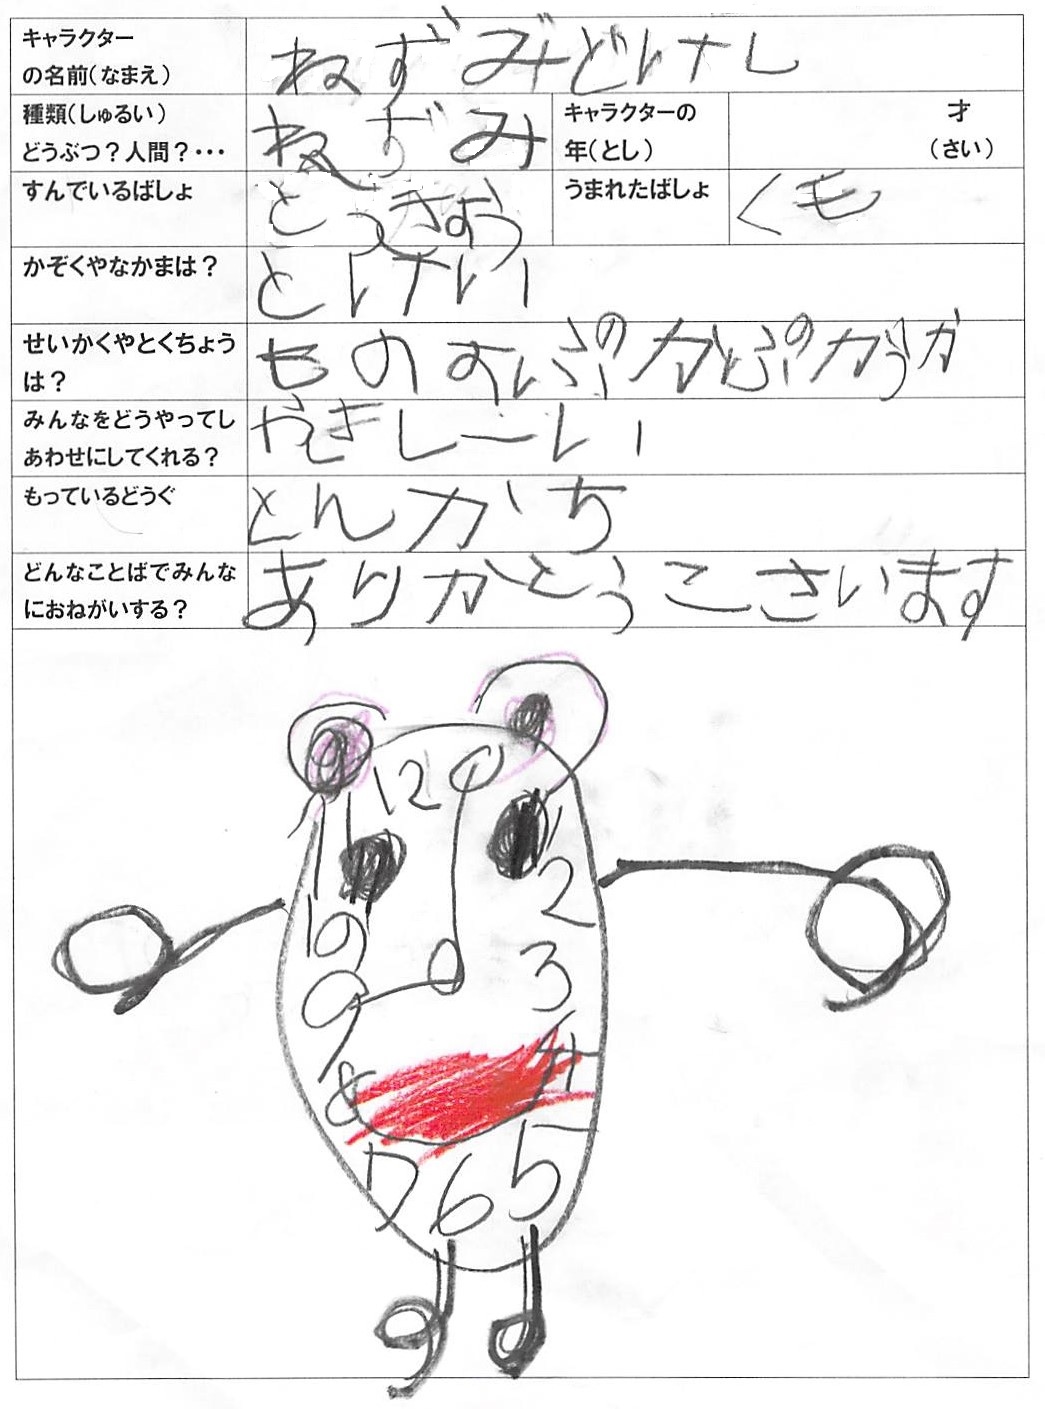 キャラクター
の名前(なまえ)
ねずみどけし
種類(しゅるい)
どうぶつ?人間?・・・
ねずみ
キャラクターの
年(とし)
才
(さい)
すんでいるばしょ
とっきょう
うまれたばしょ
くも
かぞくやなかまは?
とけい
せいかくやとくちょう
は?
みんなをどうやってし
あわせにしてくれる?
もっているどうぐ
とんかち
どんなことばでみんな
におねがいする?
ありかとうこさいます
12
11
10
2
9
3
8
4
7
6
5